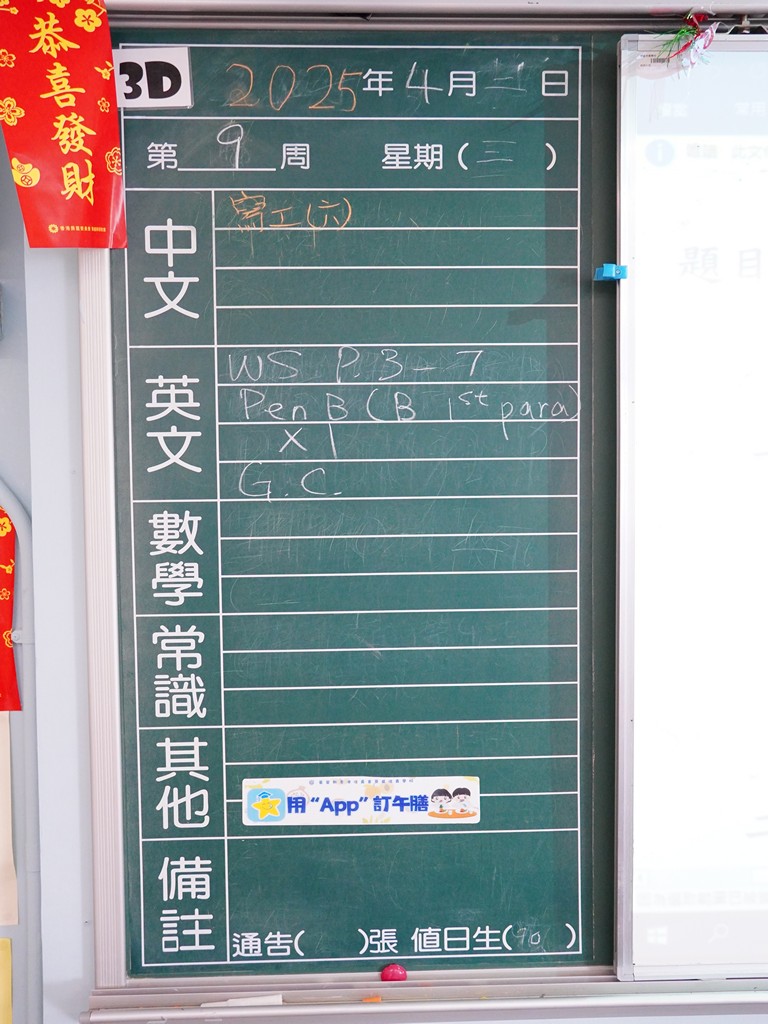 恭喜發財
3D
2025年4月 日
第9周 星期(三)
中文
寫工(六)
英文
WS P.3-7
Pen B (B 1st para)
X1
G.C.
數學
常識
其他
用“App”訂午膳
備註
通告( )張 值日生( )
題目